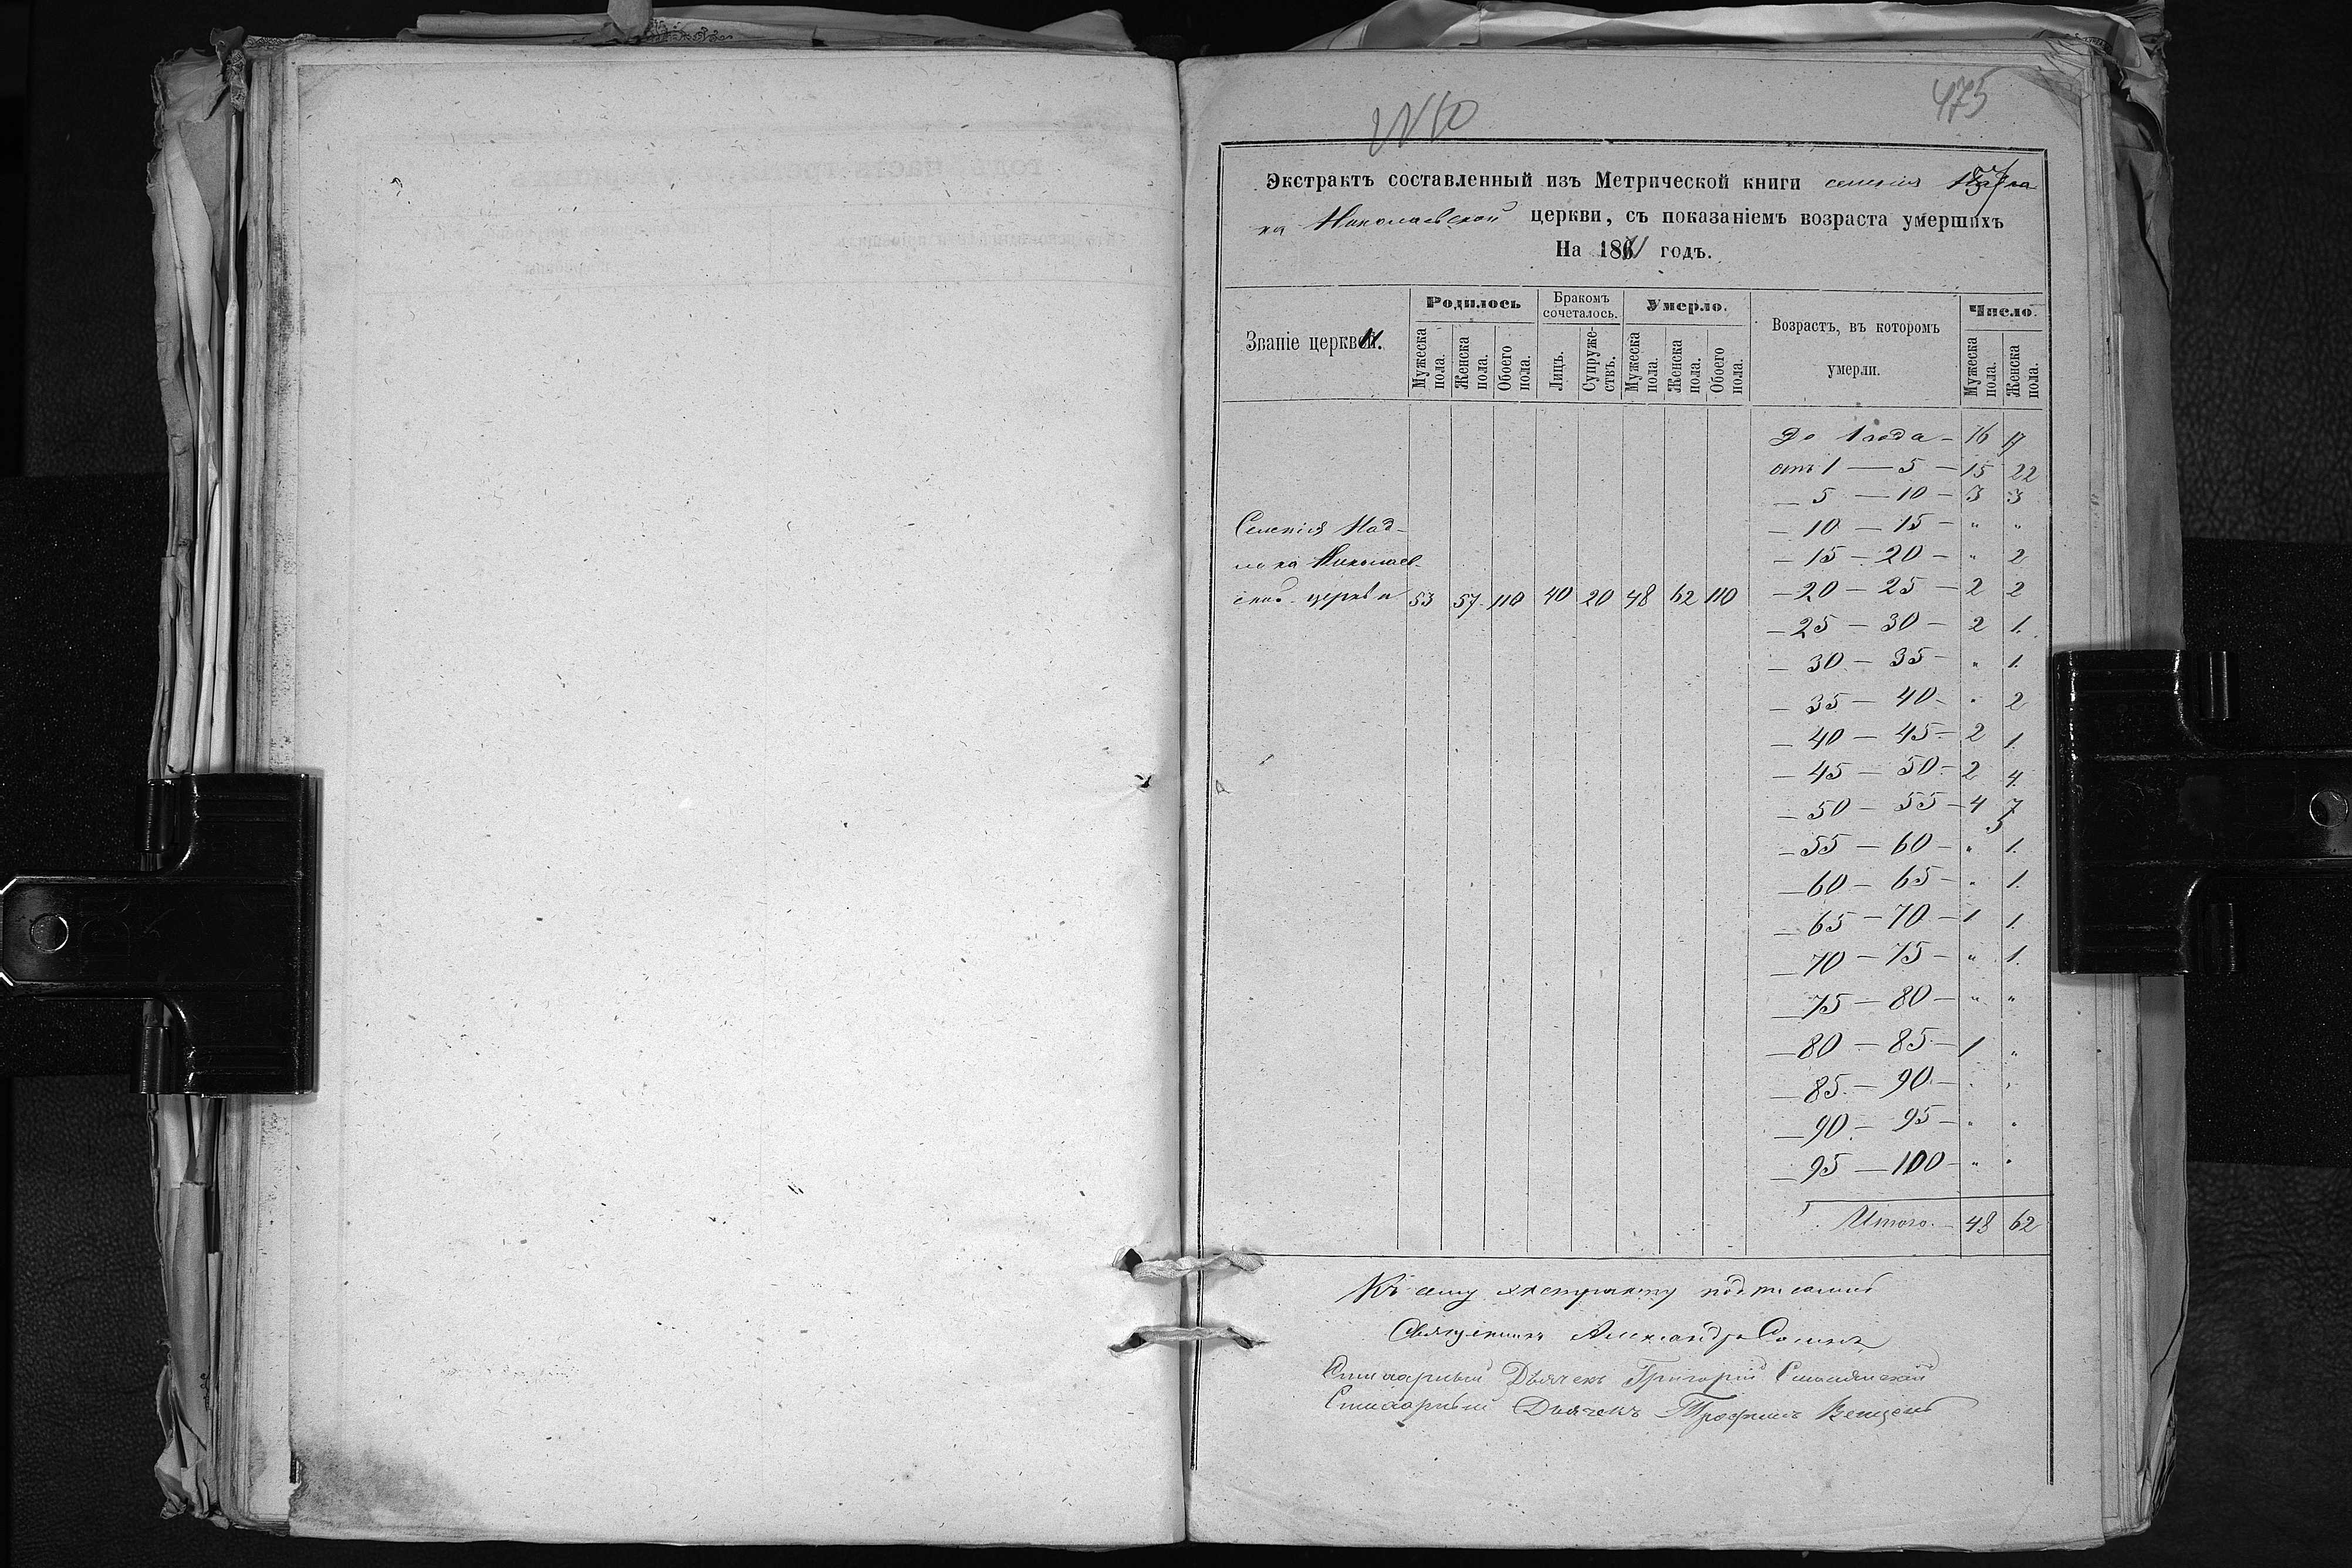 475
№ 10
Экстрактъ составленный изъ Метрической книги селенія
ка Николаевской церкви, съ показаніемъ возраста умершихъ
На 1871 годъ.
Званіе церкви.
Родилось
Бракомъ сочеталось.
Умерло.
Возрастъ, въ которомъ умерли.
Число.
Мужеска пола.
Женска пола.
Обоего пола.
Лицъ.
Супружествъ.
Мужеска пола.
Женска пола.
Обоего пола.
Мужеска пола.
Женска пола.
До 1 года — 16 17
отъ 1 — 5 — 15 22
— 5 — 10 — 3 3
— 10 — 15 — " "
— 15 — 20 — " 2
— 20 — 25 — 2 2
— 25 — 30 — 2 1.
— 30 — 35 — " 1.
— 35 — 40 — " 2
— 40 — 45 — 2 1.
— 45 — 50 — 2 4.
— 50 — 55 — 4 7 5
— 55 — 60 — " 1.
— 60 — 65 — " 1.
— 65 — 70 — 1 1.
— 70 — 75 — " 1.
— 75 — 80 — " "
— 80 — 85 — 1 "
— 85 — 90 — " "
— 90 — 95 — " "
— 95 — 100 — " "
Итого — 48 62
Селенія Над-
ла ка Николаев-
ской церкви 53 57 110 40 20 48 62 110
Къ сему экстракту подписались
Священникъ Александръ
Стихарный Дьячекъ Григорій
Стихарный Дьячекъ Трофимъ